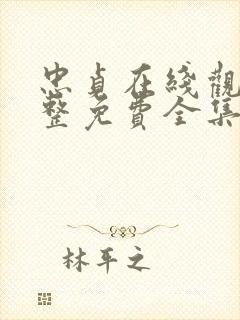 忠貞在綫觀
整免費全集
林平之